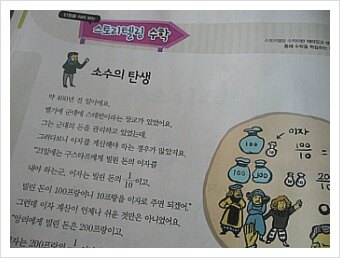 스토리텔링 수학
소수의 탄생
약 400년 전 일이에요.
벨기에 군대에 스테빈이라는 장교가 있었어요.
그는 군대의 돈을 관리하고 있었는데,
그러다보니 이자를 계산해야 하는 경우가 많았지요.
"21일에는 구스타프에게 빌린 돈의 이자를
내야 하는군. 이자는 빌린 돈의 1/10 이고,
빌린 돈이 100프랑이니 10프랑을 이자로 주면 되겠어."
그런데 이자 계산이 언제나 쉬운 것만은 아니었어요.
빌린 돈은 200프랑이고,
이자는 200프랑의
이자
100
100
1/10
100
100